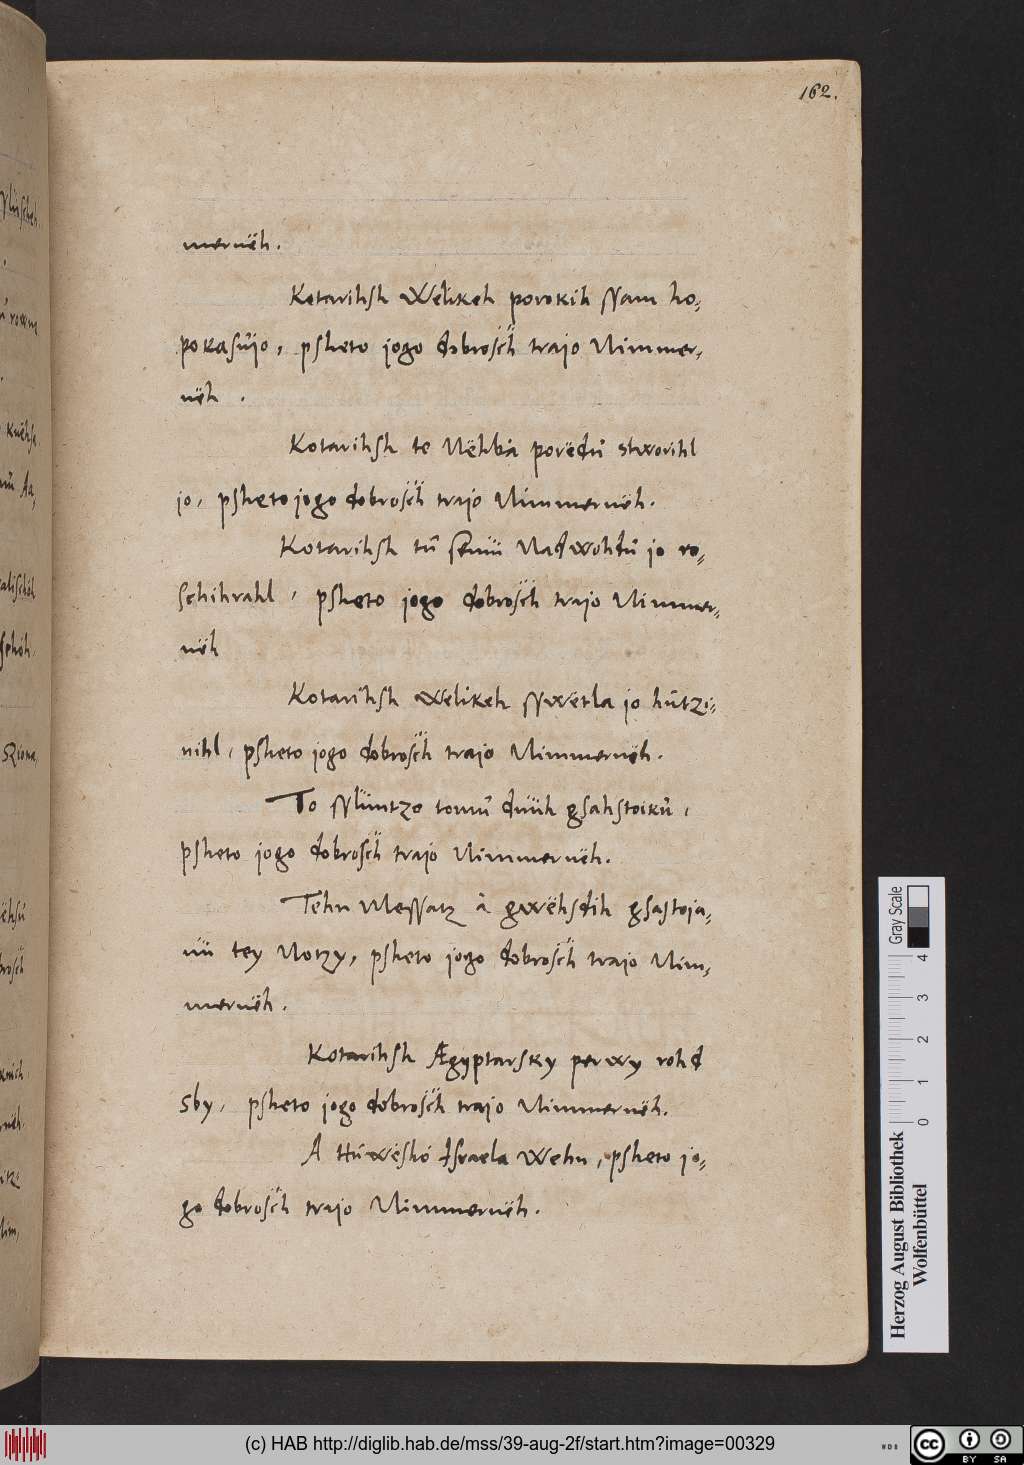 162.
mernëh.
Kotarihsh Welikeh porokih ſſam ho-
pokasůjo, psheto jogo dobrosc̈h trajo Nimmer-
nëh.
Kotarihsh te Nëhbȧ porëdů stworihl
jo, psheto jogo dobrosc̈h trajo Nimmernëh.
Kotarihsh tů semü Nadwohdů jo ro-
schihrahl, psheto jogo dobrosc̈h trajo Nimmer-
nëh
Kotarihsh welikeh ſſwëtla jo hůtzi-
nihl, psheto jogo dobrosc̈h trajo Nimmernëh.
To ſſlüntzo tomů dnüh gsahstoiků,
psheto jogo dobrosc̈h trajo Nimmernëh.
Tehn Messatz ȧ gwëhsdih gsastoja-
nü tey Notzy, psheto jogo dobrosc̈h trajo Nim-
mernëh.
Kotarihsh Ægyptarsky perwy rohd
sby, psheto jogo dobrosc̈h trajo Nimmernëh.
A Hůwëshó Israela wehn, psheto jo-
go dobrosc̈h trajo Nimmernëh.
Gray Scale
0 1 2 3 4
Herzog August Bibliothek
Wolfenbüttel
(c) HAB http://diglib.hab.de/mss/39-aug-2f/start.htm?image=00329
WDB
cc BY SA